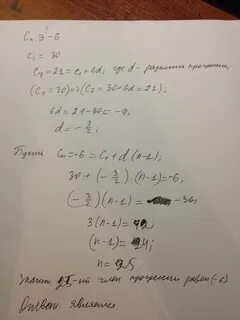 Cₙ = -6
C₁ = 30
C₇ = 21 = C₁ + 6d, где d - разность прогрессии
(C₁ = 30) => (C₇ = 30 + 6d = 21);
6d = 21 - 30 = -9,
d = -3/2;
Пусть Cₙ = -6 = C₁ + d(n-1);
30 + (-3/2) · (n-1) = -6,
(-3/2)(n-1) = -36
3(n-1) = 72,
(n-1) = 24;
n = 25
Значит 25-ый член прогрессии равен (-6).
Ответ: является